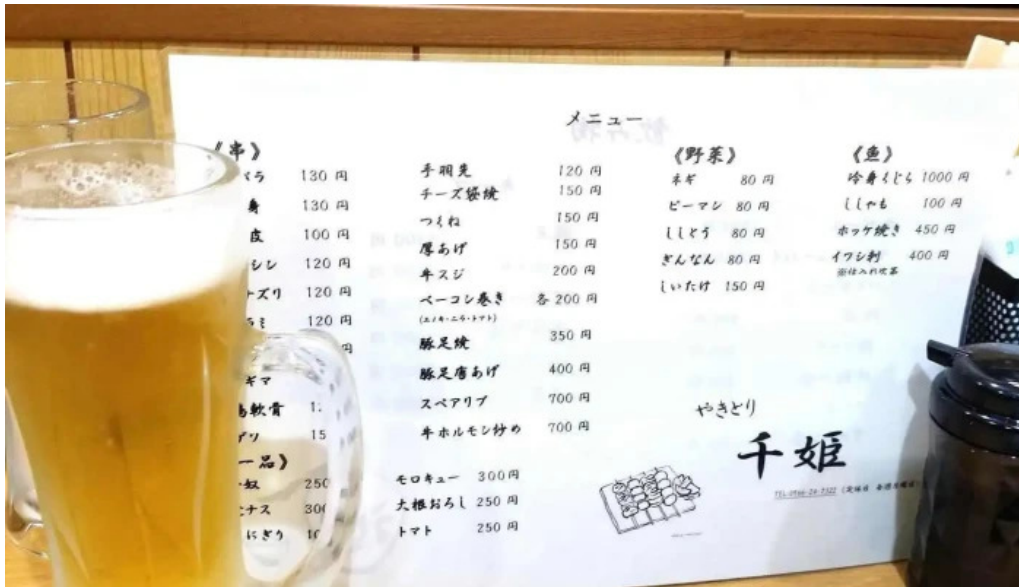 メニュー
《串》
バラ 130円
身 130円
皮 100円
シン 120円
ズリ 120円
ミ 120円
円
ギマ
軟骨
15
一品》
奴 250
ナス 300
にぎり
手羽先 120円
チーズ袋焼 150円
つくね 150円
厚あげ 150円
牛スジ 200円
ベーコン巻き 各200円
(エノキ・ニラ・トマト)
豚足焼 350円
豚足唐あげ 400円
スペアリブ 700円
牛ホルモン炒め 700円
モロキュー 300円
大根おろし 250円
トマト 250円
《野菜》
ネギ 80円
ピーマン 80円
ししとう 80円
ぎんなん 80円
しいたけ 150円
《魚》
冷身くじら 1000円
ししゃも 100円
ホッケ焼き 450円
イワシ刺 400円
やきとり
千姫